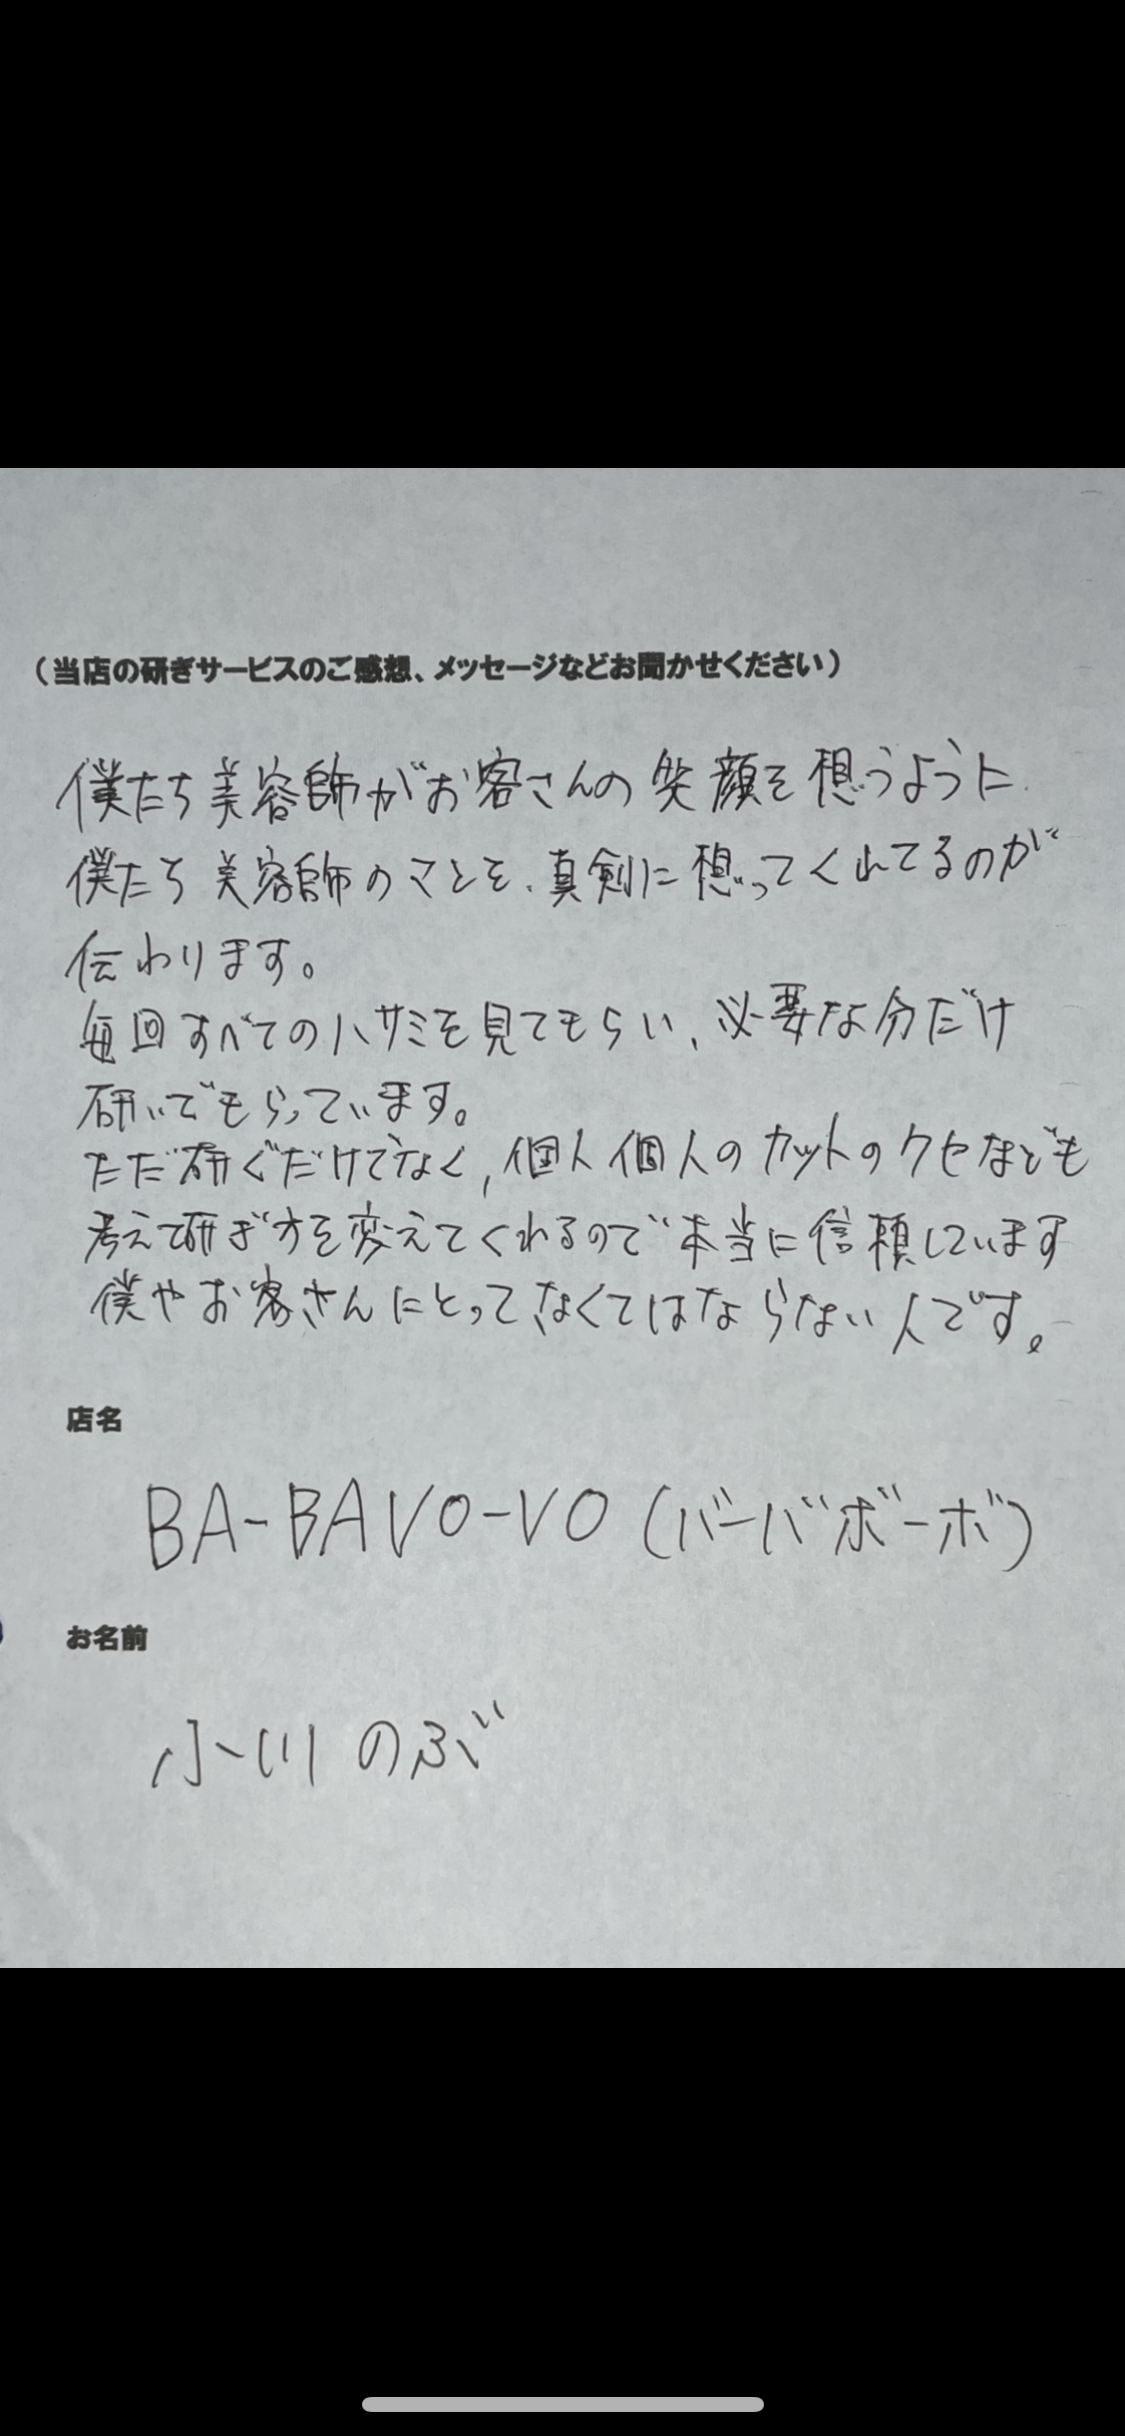 （当店の研ぎサービスのご感想、メッセージなどお聞かせください）
僕たち美容師がお客さんの笑顔を想うように
僕たち美容師のことを、真剣に想ってくれてるのが
伝わります。
毎回すべてのハサミを見てもらい、必要な分だけ
研いでもらっています。
ただ研ぐだけでなく、個人個人のカットのクセなども
考えて研ぎ方を変えてくれるので本当に信頼しています
僕やお客さんにとってなくてはならない人です。
店名
BA-BAVO-VO（バーバボーボ）
お名前
小川のぶ